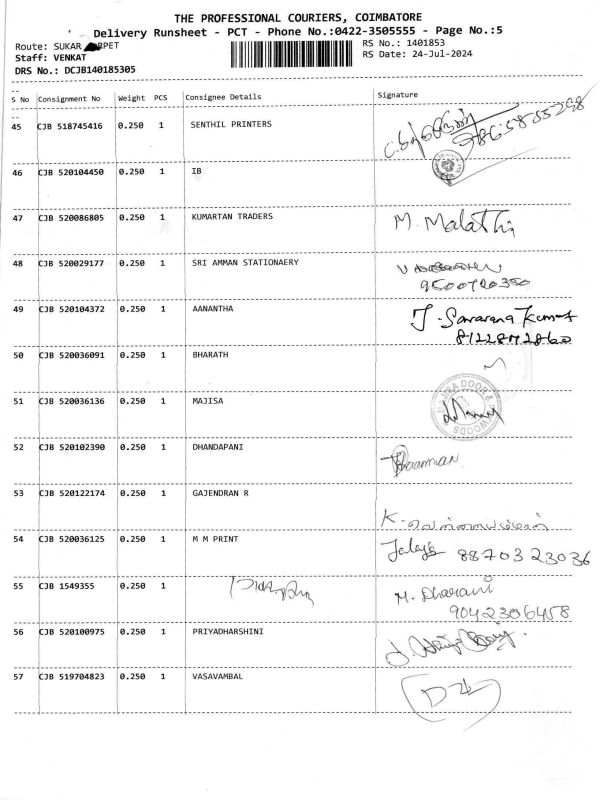 THE PROFESSIONAL COURIERS, COIMBATORE
Delivery Runsheet - PCT - Phone No.:0422-3505555 - Page No.:5
Route: SUKAR PET RS No.: 1401853
Staff: VENKAT RS Date: 24-Jul-2024
DRS No.: DCJB140185305
S No Consignment No Weight PCS Consignee Details Signature
45 CJB 518745416 0.250 1 SENTHIL PRINTERS
46 CJB 520104450 0.250 1 IB
47 CJB 520086805 0.250 1 KUMARTAN TRADERS M. Malathi
48 CJB 520029177 0.250 1 SRI AMMAN STATIONAERY
9500720350
49 CJB 520104372 0.250 1 AANANTHA J. Saravana Kumar
8122872860
50 CJB 520036091 0.250 1 BHARATH
51 CJB 520036136 0.250 1 MAJISA
52 CJB 520102390 0.250 1 DHANDAPANI
53 CJB 520122174 0.250 1 GAJENDRAN R
54 CJB 520036125 0.250 1 M M PRINT 88703 23036
55 CJB 1549355 0.250 1 M. Dharani
9042306458
56 CJB 520100975 0.250 1 PRIYADHARSHINI
57 CJB 519704823 0.250 1 VASAVAMBAL